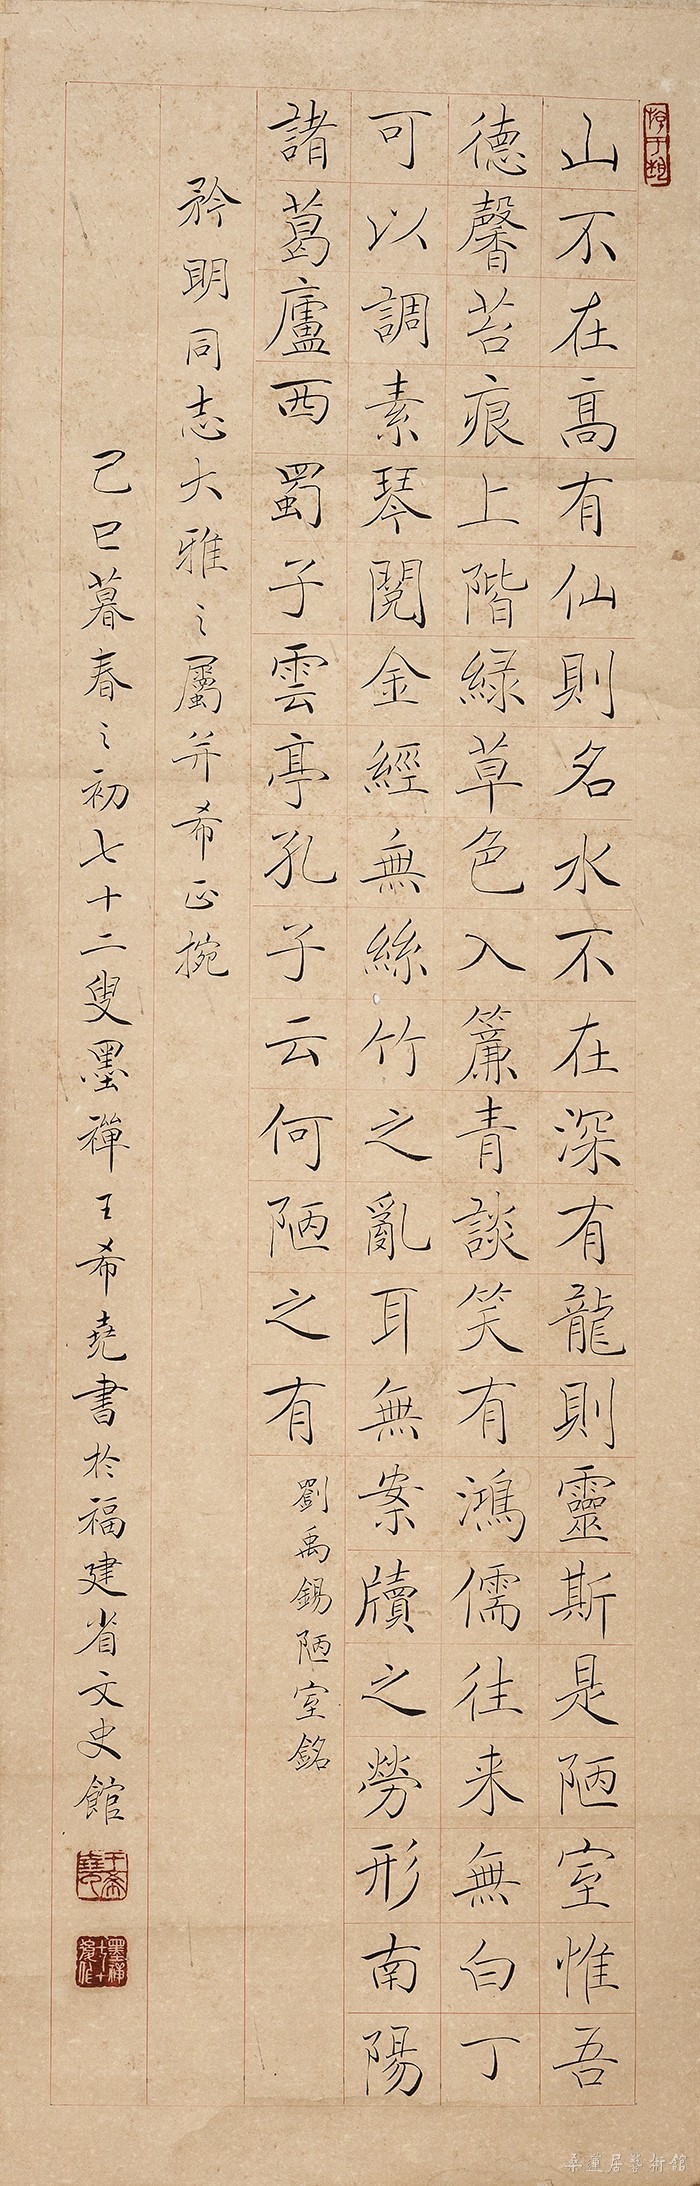 山不在高有仙則名水不在深有龍則靈斯是陋室惟吾
德馨苔痕上階緑草色入簾青談笑有鴻儒往来無白丁
可以調素琴閱金經無絲竹之亂耳無案牘之勞形南陽
諸葛廬西蜀子雲亭孔子云何陋之有
劉禹錫陋室銘
矜明同志大雅之屬并希正捥
己巳暮春之初七十二叟墨禪王希堯書於福建省文史館
王希堯
桑蓮居藝術館